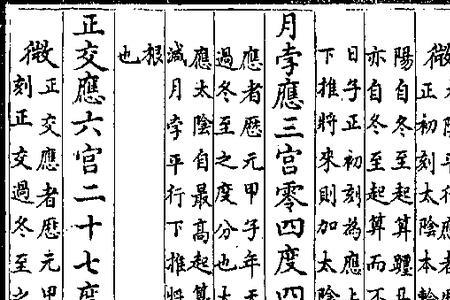 太陰平行應者
微正初刻太陰本輪
陽自冬至起算躔
亦自冬至起算而不
日子正初刻為應上
下推將來則加太陰
月孛應三宮零四度四
應者厯元甲子年天
過冬至之度分也太
應太陰自最高起算
減月孛平行下推將
根
也
正交應六宮二十七度
微正交應者厯元甲
刻正交過冬至之